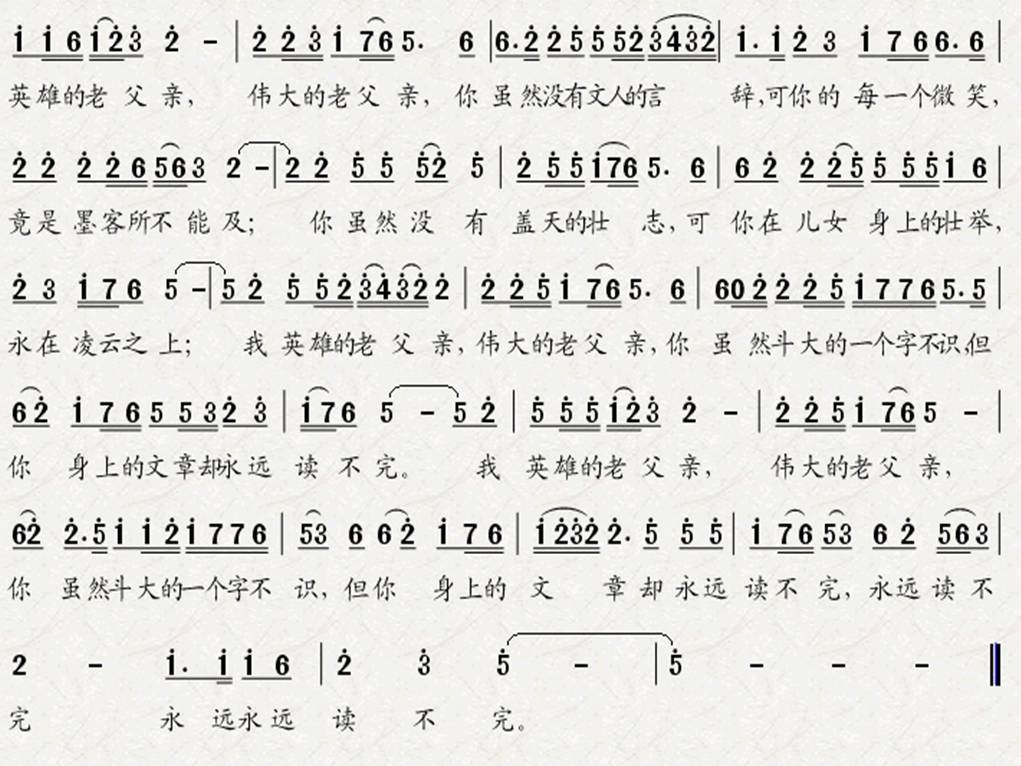 i i 6 i 2 3 2 - | 2 2 3 i 7 6 5. 6 | 6. 2 2 5 5 5 2 3 4 3 2 | i. i 2 3 i 7 6 6. 6 |
英雄的老父亲， 伟大的老父亲，你虽然没有文人的言 辞，可你的每一个微笑，
2 2 2 2 6 5 6 3 2 - | 2 2 5 5 5 2 5 | 2 5 5 i 7 6 5. 6 | 6 2 2 2 5 5 5 5 i 6 |
竟是墨客所不能及； 你虽然没有盖天的壮志，可你在儿女身上的壮举，
2 3 i 7 6 5 - | 5 2 5 5 2 3 4 3 2 2 | 2 2 5 i 7 6 5. 6 | 6 0 2 2 2 5 i 7 7 6 5. 5 |
永在凌云之上； 我英雄的老父亲，伟大的老父亲，你虽然斗大的一个字不识，但
6 2 i 7 6 5 5 3 2 3 | i 7 6 5 - 5 2 | 5 5 5 i 2 3 2 - | 2 2 5 i 7 6 5 - |
你 身上的文章却永远读不完。 我英雄的老父亲， 伟大的老父亲，
6 2 2. 5 i i 2 i 7 7 6 | 5 3 6 6 2 i 7 6 | i 2 3 2 2. 5 5 5 | i 7 6 5 3 6 2 5 6 3 |
你 虽然斗大的一个字不识，但你 身上的文 章却永远读不完，永远读不
2 - i. i i 6 | 2 3 5 - | 5 - - - ‖
完 永远永远读不完。